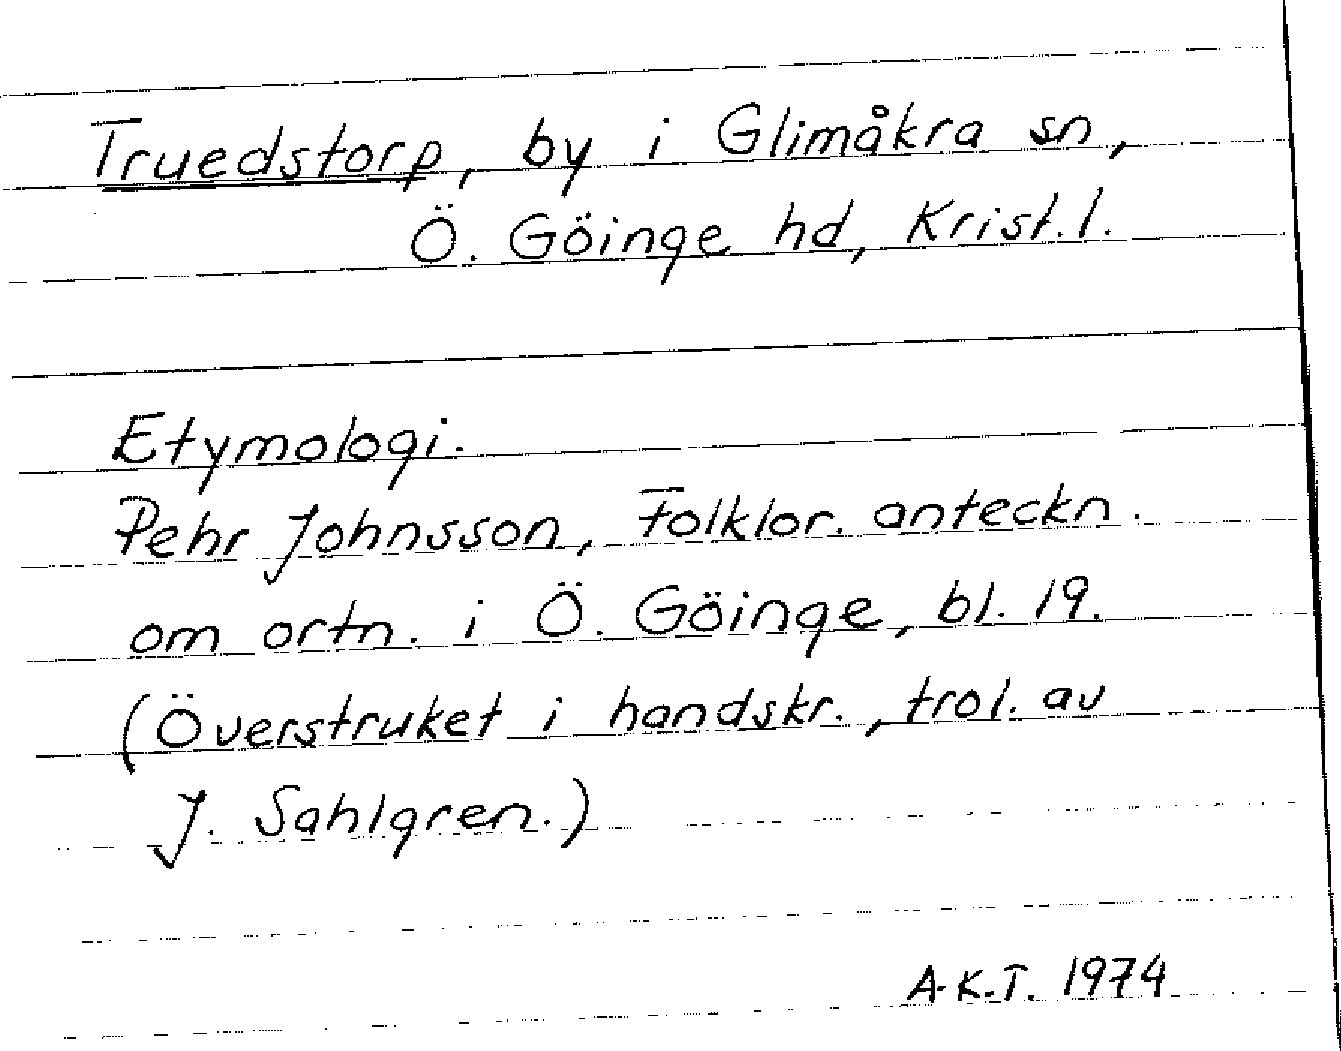 Truedstorp, by i Glimåkra sn,
Ö. Göinge hd, Krist. l.
Etymologi.
Pehr Johnsson, Folklor. anteckn.
om ortn. i Ö. Göinge, bl. 19.
(Överstruket i handskr., trol. av
J. Sahlgren.)
A.K.T. 1974